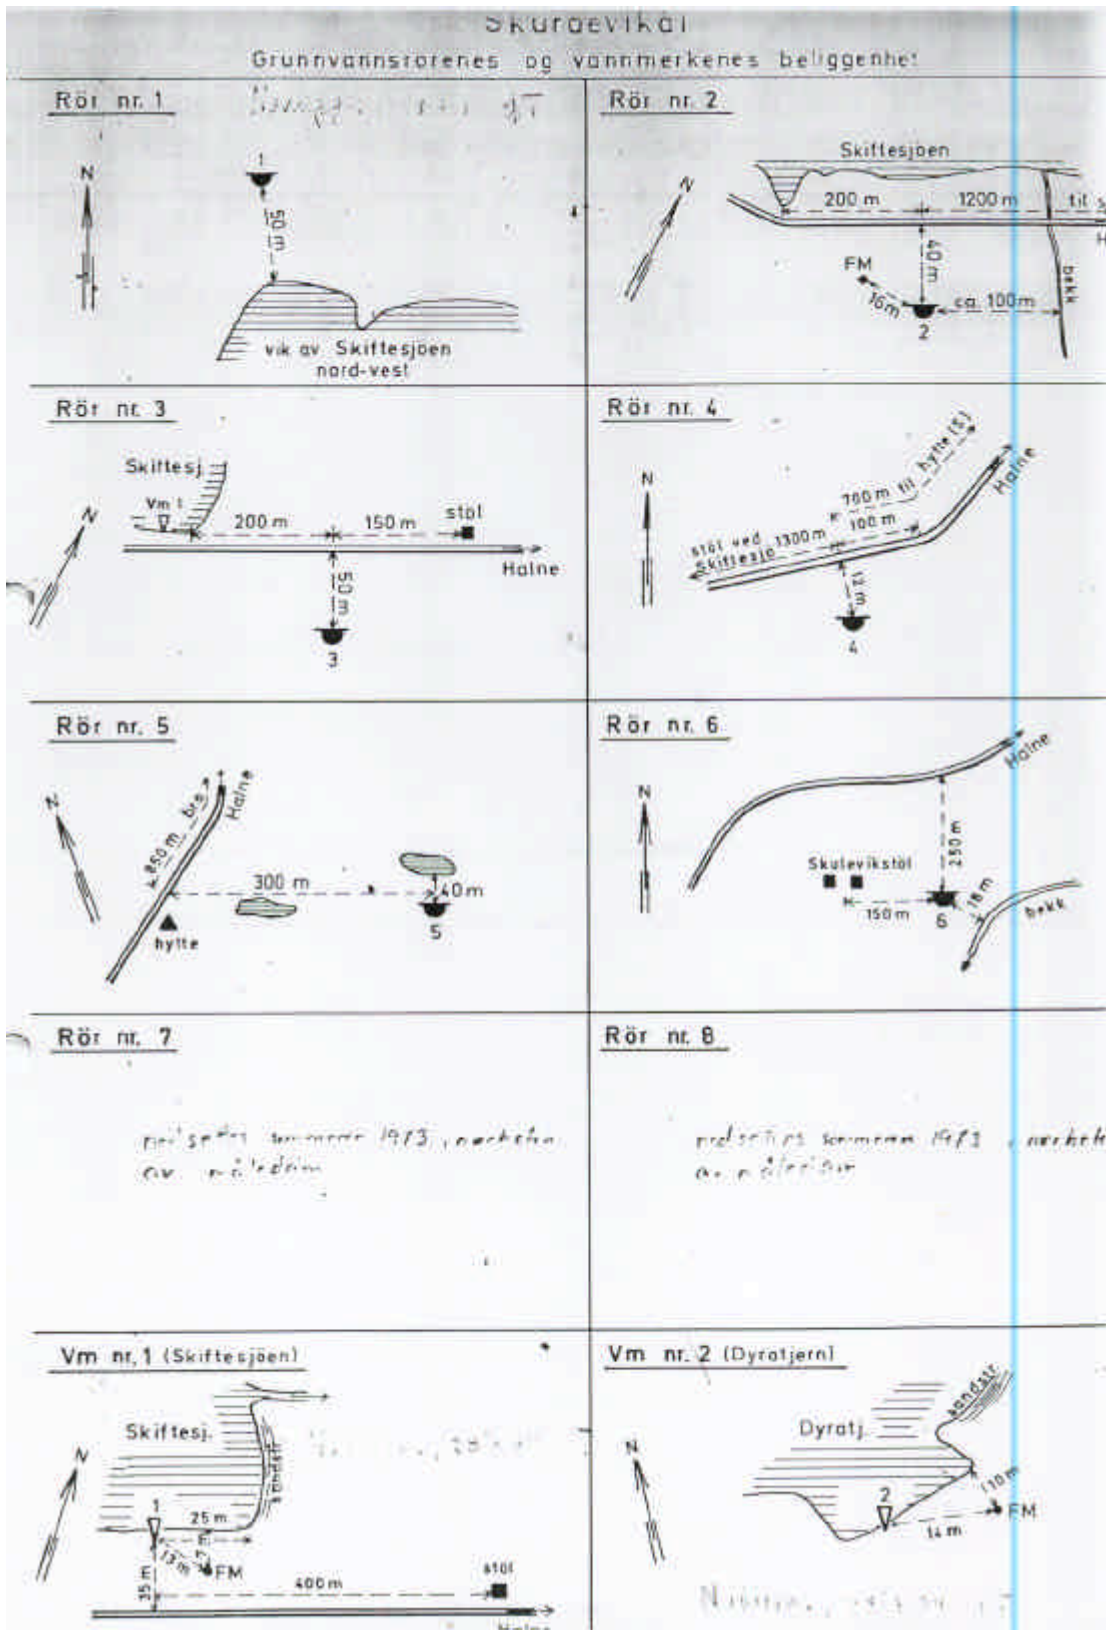 Skurdevikdi
Grunnvannsrörenes og vannmerkenes beliggenhet
Rör nr. 1
N
1
50 m
vik av Skiftesjöen
nord-vest
Rör nr. 2
Skiftesjöen
N
200 m
1200 m
til s
H
40 m
FM
16m
ca. 100m
bekk
2
Rör nr. 3
Skiftesj.
Vm 1
N
200 m
150 m
stöl
Halne
50 m
3
Rör nr. 4
N
700 m til hytte (S)
100 m
Halne
stöl ved
Skiftesjö 1300 m
12 m
4
Rör nr. 5
N
850 m bro
Halne
300 m
40 m
hytte
5
Rör nr. 6
N
Halne
250 m
Skulevikstöl
150 m
6
18 m
bekk
Rör nr. 7
nedsettes sommeren 1973 i nærheten
av måledam
Rör nr. 8
nedsettes sommeren 1973 i nærhete
av måledam
Vm nr. 1 (Skiftesjöen)
Skiftesj.
sandstr.
N
1
25 m
7 m
13 m
FM
35 m
400 m
stöl
Halne
Vm nr. 2 (Dyratjern)
sandstr.
Dyratj.
N
2
10 m
FM
14 m